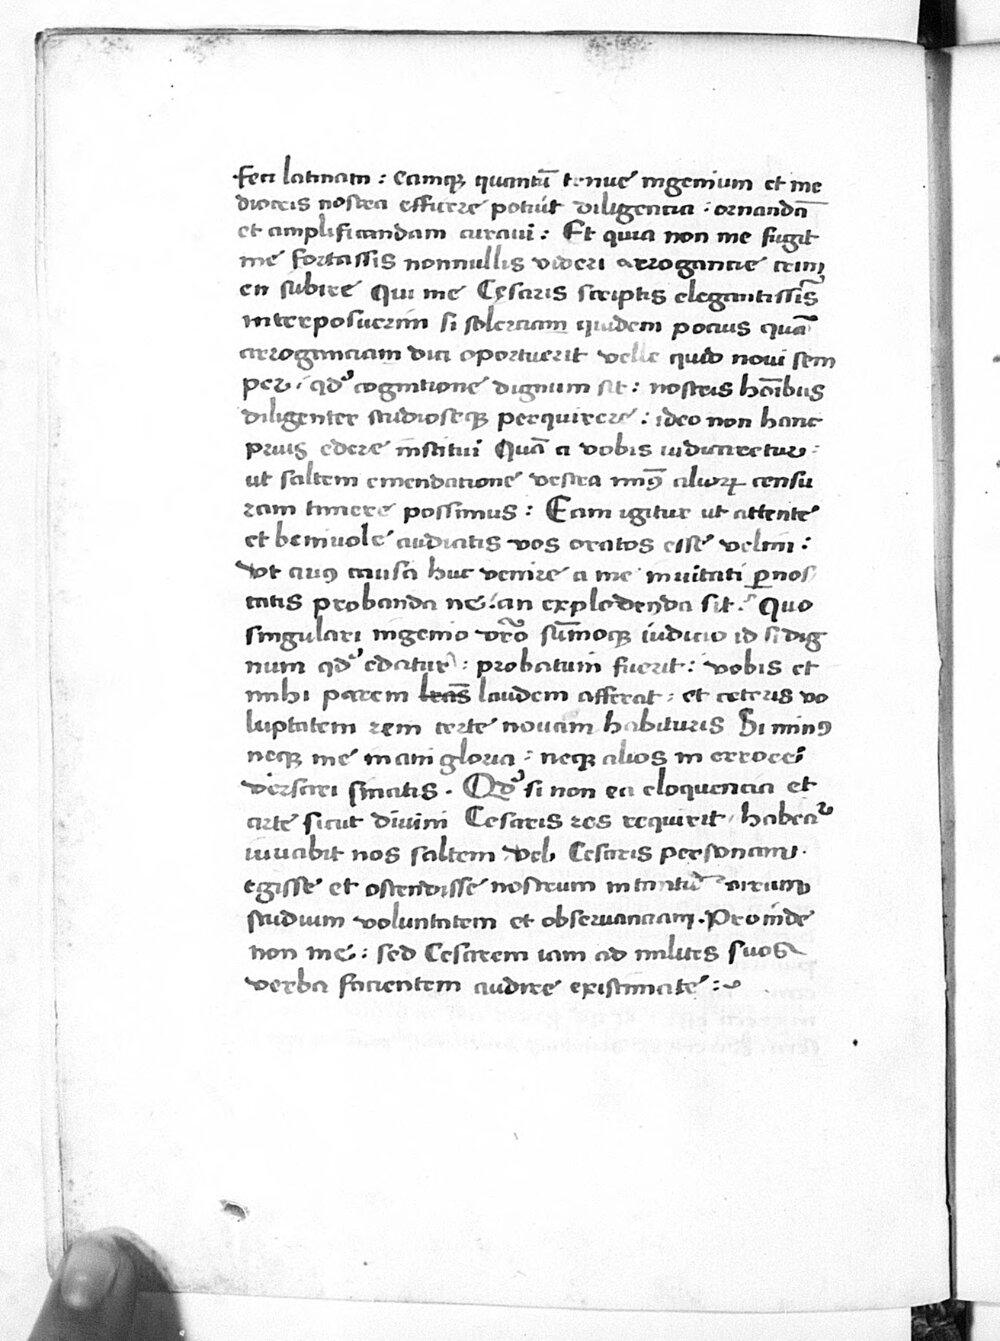 feci latinam : eamq; quantū tenue ingenium et me
diocris nostra efficere potuit diligencia : ornandā
et amplificandam curaui : Et quia non me fugit
me fortassis nonnullis videri arrogancie crim
en subire Qui me Cęsaris scriptis elegantissīs
interposuerim si solerciam quidem pocius quā
arroganciam dici oportuerit velle quid noui sem
per : qd' cognitione dignum sit : nostris hōibus
diligenter studioseq; perquirere : ideo non hanc
prius edere institui Quā a vobis iudicaretur :
ut saltem emendatione vestra min9 alioꝝ censu
ram timere possimus : Eam igitur ut attente
et beniuole audiatis vos oratos esse velim :
Vt cui9 causa huc venire a me inuitati ꝑnos
catis probanda ne : an explodenda sit : Quo
singulari ingenio vr̄o sūmoq; iudicio id si dig
num qd' edatur : probatum fuerit : vobis et
mihi parem laudem afferat : et ceteris vo
luptatem rem certe nouam habituris Si min9
neq; me inani gloria : neq; alios in errore
versari sinatis . Qd' si non ea eloquencia et
arte sicut diuini Cesaris res requirit habear
iuuabit nos saltem vel Cesaris personam
egisse et ostendisse nostrum in tantū virum
studium voluntatem et obseruanciam . Proinde
non me : sed Cesarem iam ad milites suos
verba facientem audire existimate :